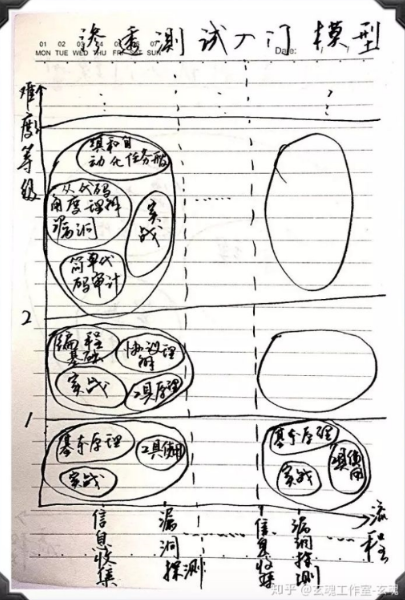 渗透测试入门模型
01 02 03 04 07
MON TUE WED THU FRI SUN
Date:
难度等级
自
动化任务
从代码
角度理解
漏洞
实战
简单代
码审计
2
编程
基础
协议理
解
实战
工具原理
1
基本原理
工具使用
实战
基本原理
工具使
用
实战
信息收集
漏洞
探测
信息收集
漏洞探测
流程
知乎 @玄魂工作室-玄魂